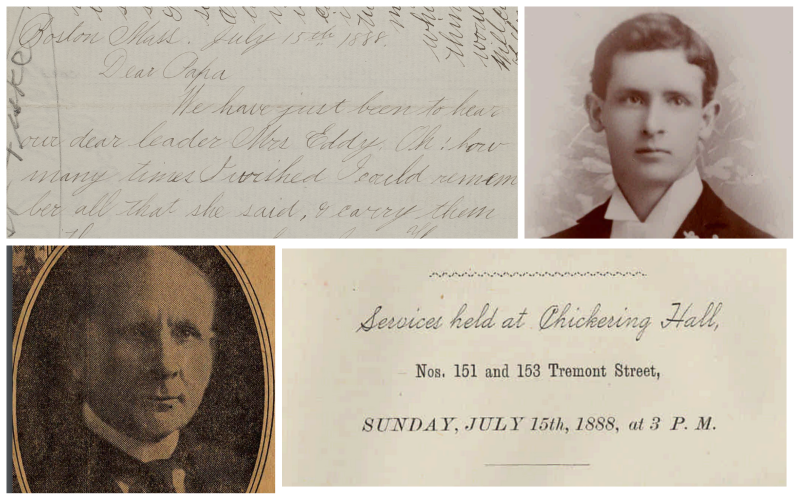 Boston Mass. July 15th 1888.
Dear Papa
We have just been to hear
our dear leader Mrs Eddy. Oh! how
many times I wished I could remem
ber all that she said, & carry them
Services held at Chickering Hall,
Nos. 151 and 153 Tremont Street,
SUNDAY, JULY 15th, 1888, at 3 P. M.